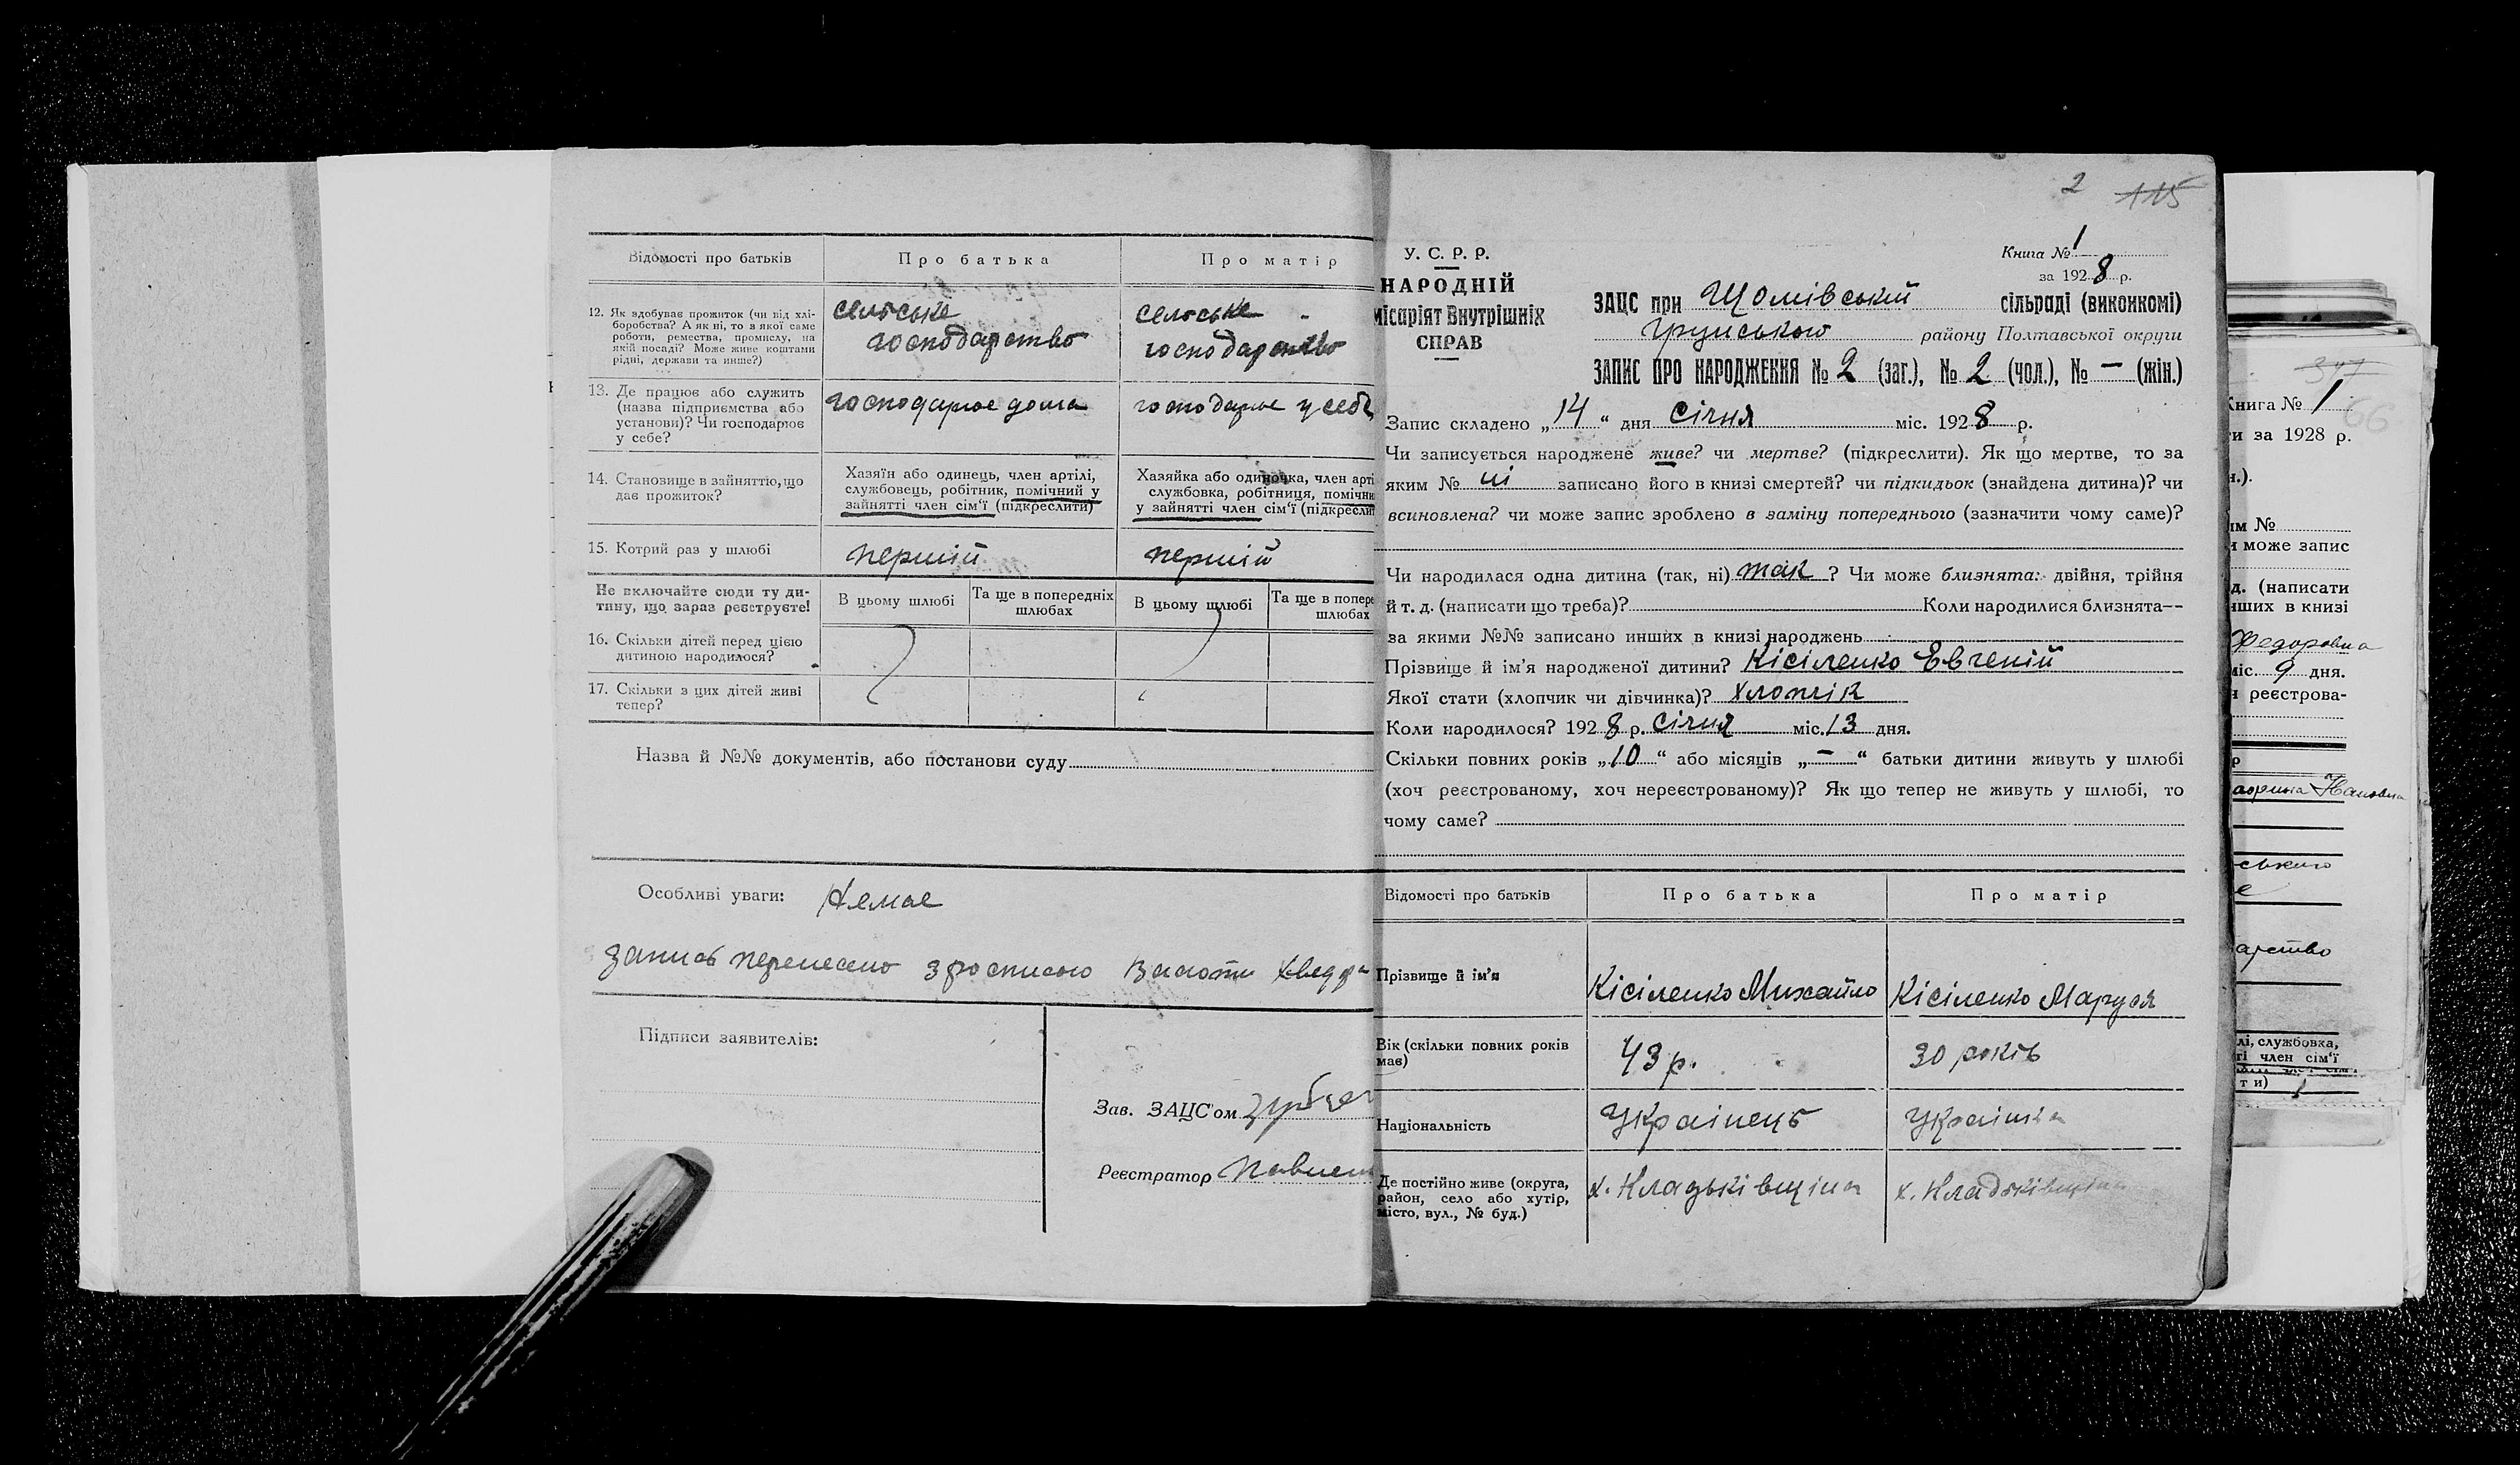 Відомості про батьків
Про батька
Про матір
12. Як здобуває прожиток (чи від хлі-
боробства? А як ні, то з якої саме
роботи, ремества, промислу, на
якій посаді? Може живе коштами
рідні, держави та инше?)
сельське
господарство
сельське
господарство
13. Де працює або служить
(назва підприємства або
установи)? Чи господарює
у себе?
господарює дома
господарює у себе
14. Становище в зайняттю, що
дає прожиток?
Хазяїн або одинець, член артілі,
службовець, робітник, помічний у
зайнятті член сім'ї (підкреслити)
Хазяйка або одиночка, член арті
службовка, робітниця, помічни
у зайнятті член сім'ї (підкресли
15. Котрий раз у шлюбі
першій
першій
Не включайте сюди ту ди-
тину, що зараз реєструєте!
В цьому шлюбі
Та ще в попередніх
шлюбах
В цьому шлюбі
Та ще в попере
шлюбах
16. Скільки дітей перед цією
дитиною народилося?
17. Скільки з цих дітей живі
тепер?
Назва й №№ документів, або постанови суду
Особливі уваги: Немає
запись перенесено з росписою
Підписи заявителів:
Зав. ЗАЦС'ом
Реєстратор
2 115
У. С. Р. Р.
НАРОДНІЙ
місаріят Внутрішніх
СПРАВ
Книга № 1
за 1928 р.
ЗАЦС при Щомівській сільраді (виконкомі)
Грунського району Полтавської округи
ЗАПИС ПРО НАРОДЖЕННЯ № 2 (заг.), № 2 (чол.), № — (жін.)
Запис складено „14“ дня січня міс. 1928 р.
Чи записується народжене живе? чи мертве? (підкреслити). Як що мертве, то за
яким № записано його в книзі смертей? чи підкидьок (знайдена дитина)? чи
всиновлена? чи може запис зроблено в заміну попереднього (зазначити чому саме)?
Чи народилася одна дитина (так, ні) так? Чи може близнята: двійня, трійня
й т. д. (написати що треба)? Коли народилися близнята—
за якими №№ записано инших в книзі народжень
Прізвище й ім'я народженої дитини? Кісіленко Евгеній
Якої стати (хлопчик чи дівчинка)? хлопчік
Коли народилося? 1928 р. січня міс. 13 дня.
Скільки повних років „10“ або місяців „—“ батьки дитини живуть у шлюбі
(хоч реєстрованому, хоч нереєстрованому)? Як що тепер не живуть у шлюбі, то
чому саме?
Відомості про батьків
Про батька
Про матір
Прізвище й ім'я
Кісіленко Михайло
Кісіленко Маруся
Вік (скільки повних років
має)
43 р.
30 років
Національність
Українець
Українка
Де постійно живе (округа,
район, село або хутір,
місто, вул., № буд.)
х. Кладьківщіна
х. Кладьківщіна
347
Книга № 1
66
ти за 1928 р.
н.).
им №
и може запис
д. (написати
нших в книзі
Федоровна
міс. 9 дня.
реєстрова-
р
ського
арство
лі, службовка,
ті член сім'ї
ти)